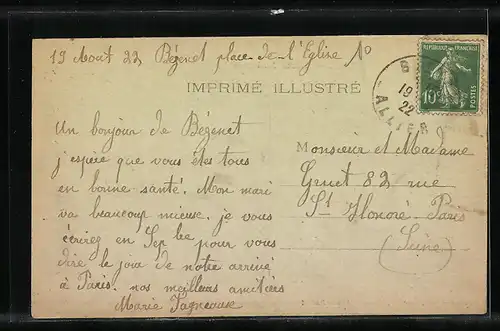 19 Aout 22 Bézenet place de l'Eglise No
IMPRIMÉ ILLUSTRÉ
RÉPUBLIQUE FRANÇAISE
10c
POSTES
19
22
ALLIER
Un bonjour de Bézenet
j'espère que vous êtes tous
en bonne santé. Mon mari
va beaucoup mieuse. je vous
écrirez en Sep bre pour vous
dire le joie de notre arrivé
à Paris. nos meilleurs amitiées
Marie
Monsieur et Madame
82 rue
St Honoré Paris
(Seine)